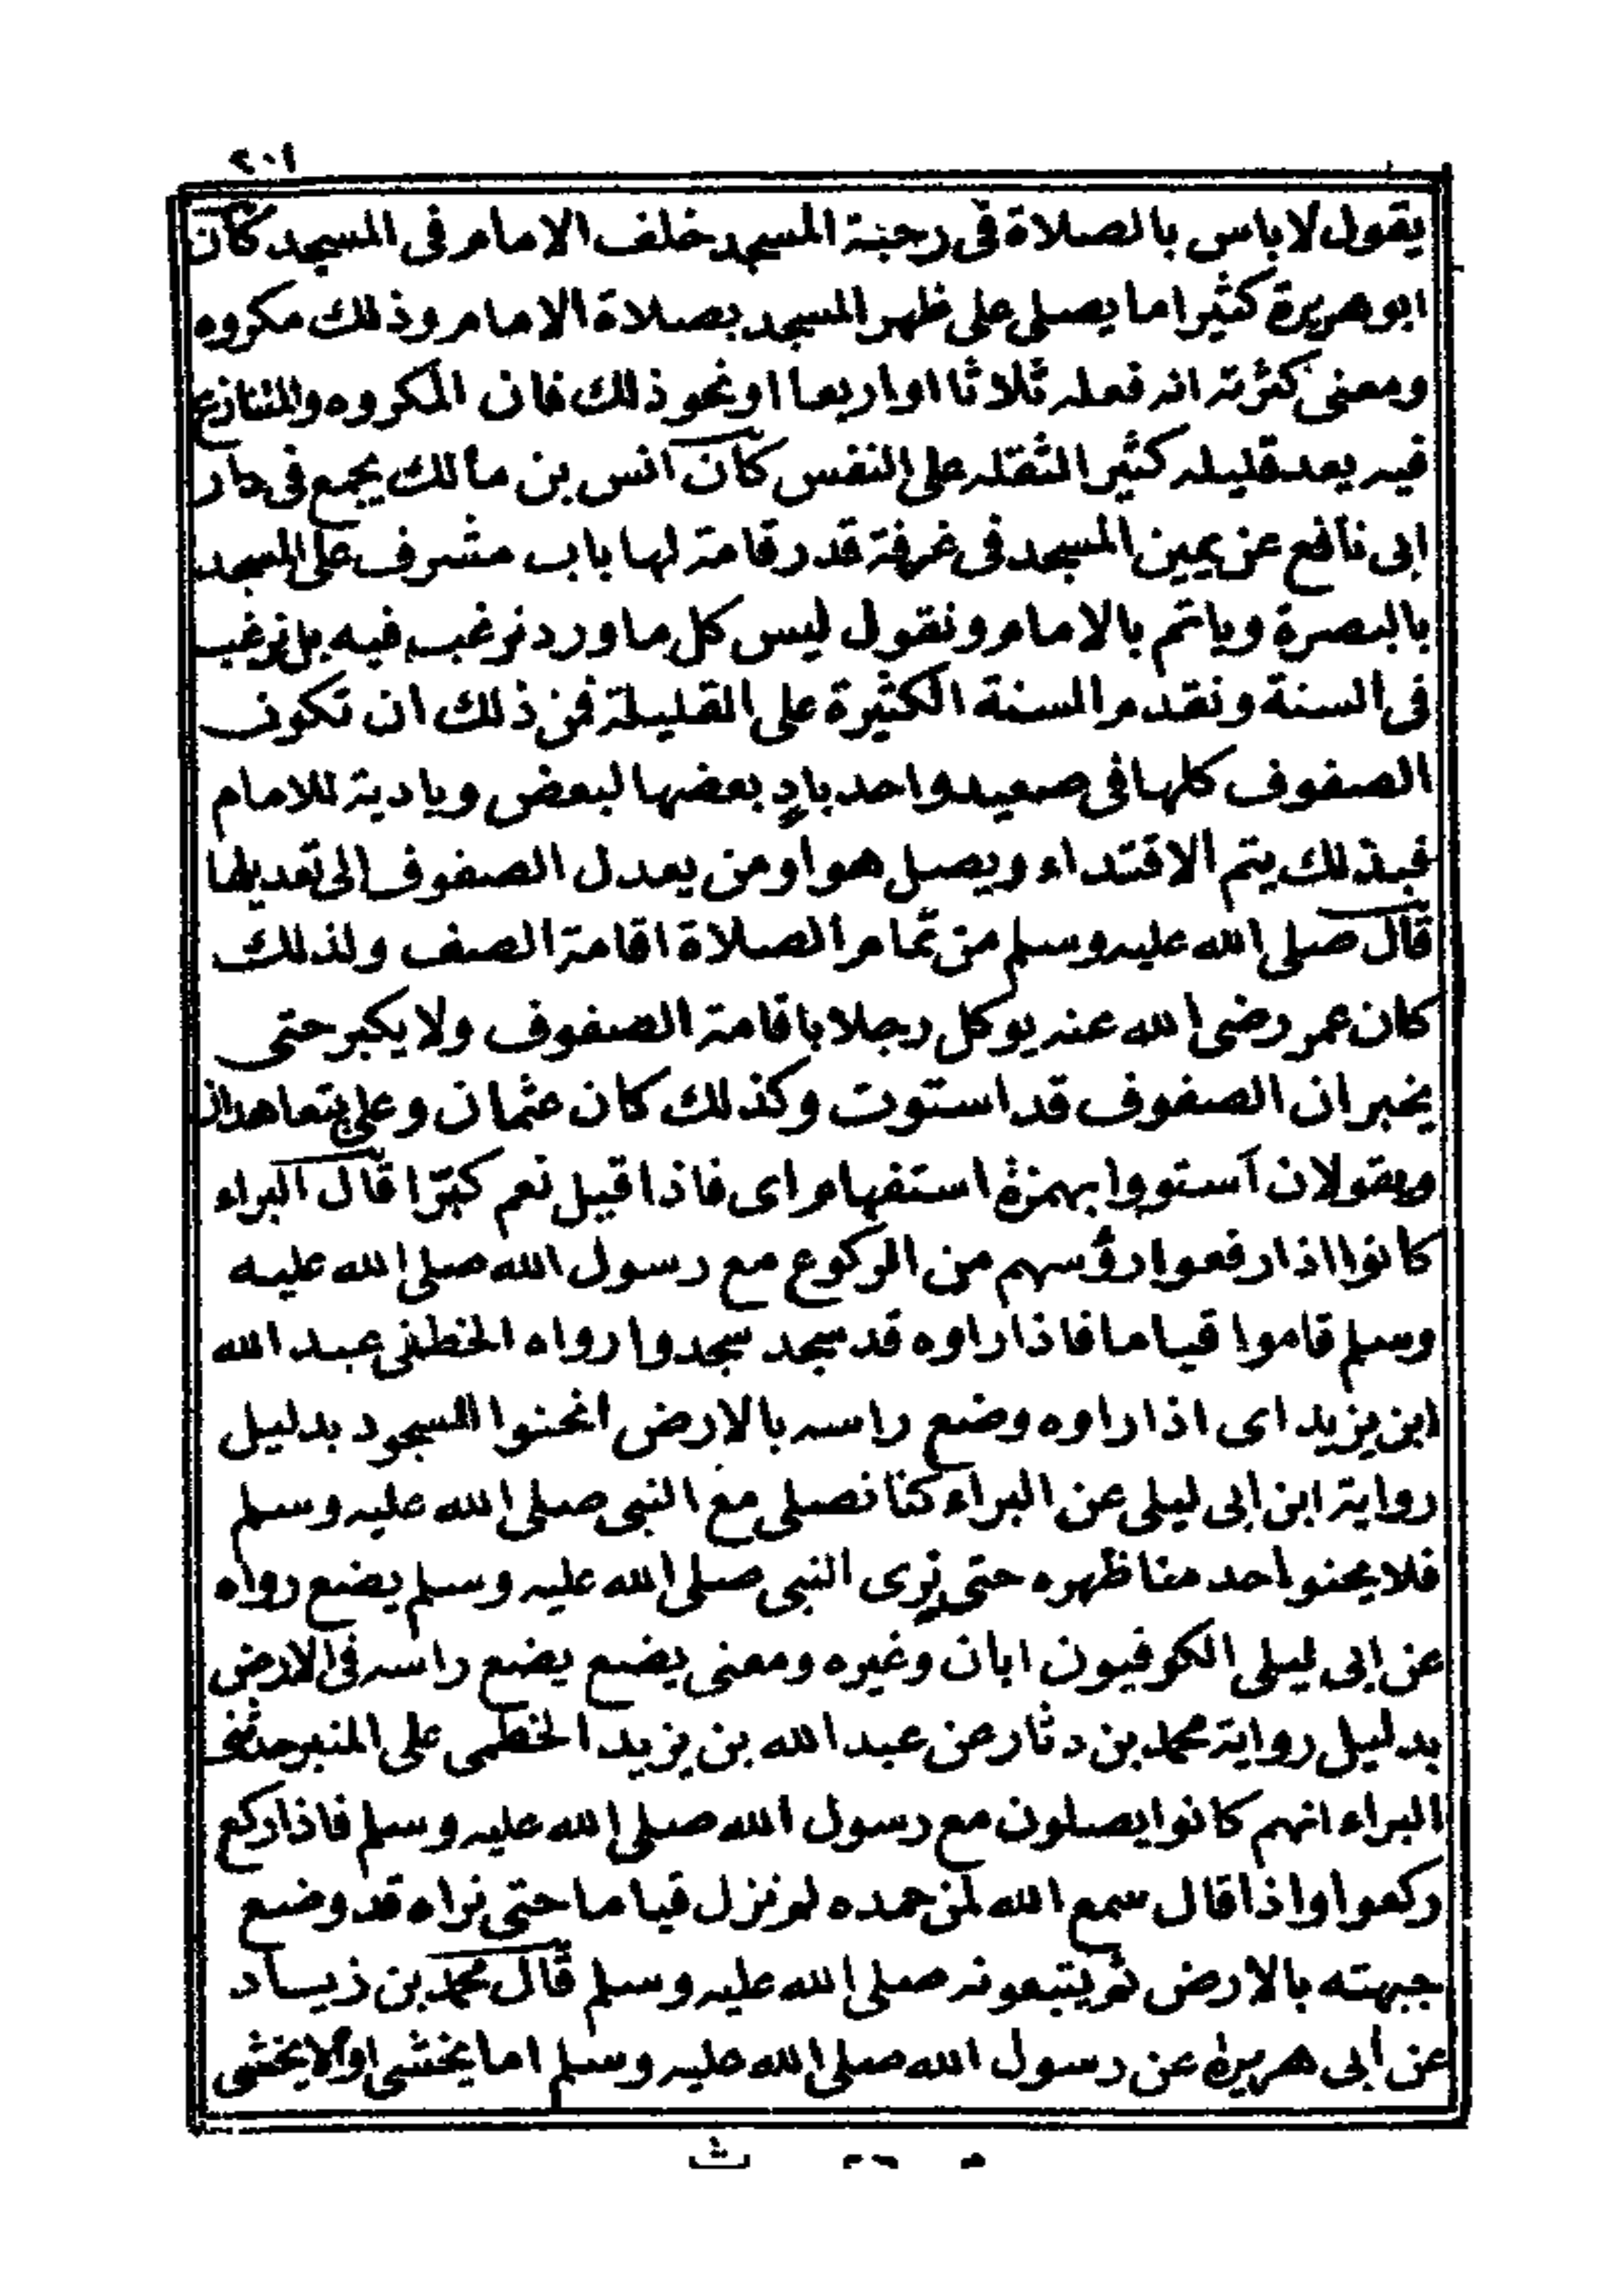 ٢٠١
يقول لا باس بالصلاة فى رحبة المسجد خلف الامام فى المسجد كان
ابو هريرة كثيرا ما يصلى على ظهر المسجد بصلاة الامام وذلك مكروه
ومعنى كثرته انه فعله ثلاثا او اربعا او نحو ذلك فان المكروه والمتنازع
فيه يعد قليله كثيرا لثقله على النفس كان انس بن مالك يجمع فى دار
ابى نافع عن يمين المسجد فى غرفة قدر قامة لها باب مشرف على المسجد
بالبصرة وياتم بالامام ونقول ليس كل ما ورد نرغب فيه بل نرغب
فى السنة ونقدم السنة الكثيرة على القليلة فمن ذلك ان تكون
الصفوف كلها فى صعيد واحد بادٍ بعضها لبعض وبادية للامام
فبذلك يتم الاقتداء ويصل هو او من يعدل الصفوف الى تعديلها
قال صلى الله عليه وسلم من تمام الصلاة اقامة الصف ولذلك
كان عمر رضى الله عنه يوكل رجلا باقامة الصفوف ولا يكبر حتى
يخبر ان الصفوف قد استوت وكذلك كان عثمان وعلى يتعاهدان
ويقولان آستووا بهمزة استفهام اى فاذا قيل نعم كبّرا قال البراء
كانوا اذا رفعوا رؤسهم من الركوع مع رسول الله صلى الله عليه
وسلم قاموا قياما فاذا راوه قد سجد سجدوا رواه الخطمى عبد الله
ابن يزيد اى اذا راوه وضع راسه بالارض انحنوا للسجود بدليل
رواية ابن ابى ليلى عن البراء كنا نصلى مع النبى صلى الله عليه وسلم
فلا يحنو احد منا ظهره حتى نرى النبى صلى الله عليه وسلم يضع رواه
عن ابى ليلى الكوفيون ابان وغيره ومعنى يضع يضع راسه فى الارض
بدليل رواية محمد بن دثار عن عبد الله بن يزيد الخطمى على المنبر حدثنى
البراء انهم كانوا يصلون مع رسول الله صلى الله عليه وسلم فاذا ركع
ركعوا واذا قال سمع الله لمن حمده لم نزل قياما حتى نراه قد وضع
جبهته بالارض ثم يتبعونه صلى الله عليه وسلم قال محمد بن زيساد
عن ابى هريرة عن رسول الله صلى الله عليه وسلم اما يخشى او الا يخشى